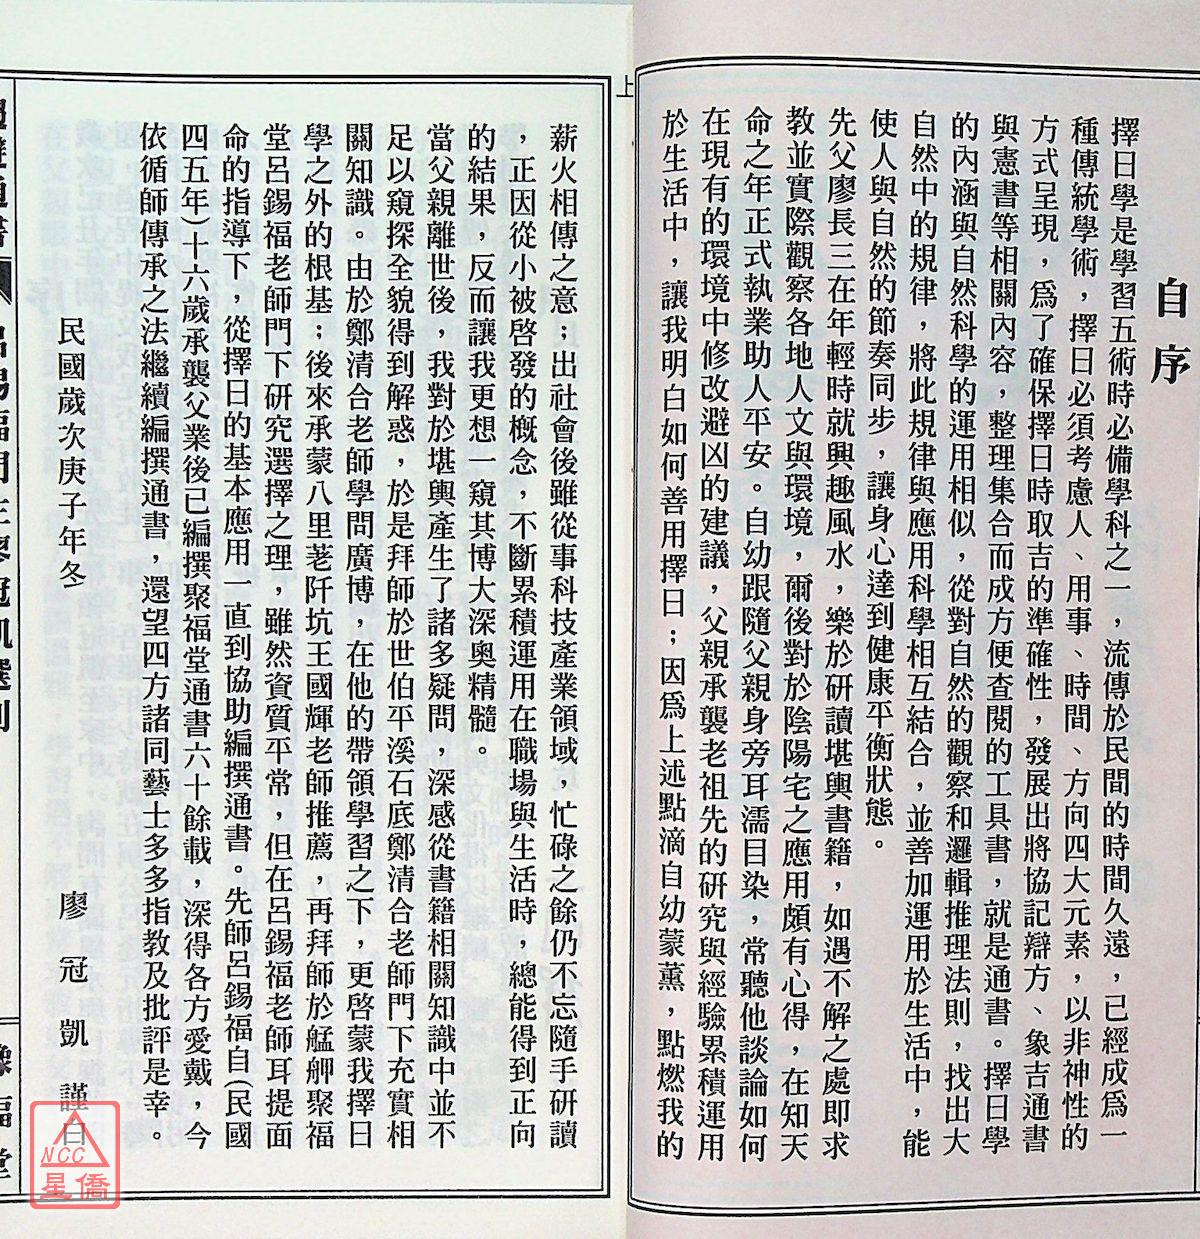 自序
擇日學是學習五術時必備學科之一，流傳於民間的時間久遠，已經成爲一
種傳統學術，擇日必須考慮人、用事、時間、方向四大元素，以非神性的
方式呈現，爲了確保擇日時取吉的準確性，發展出將協記辯方、象吉通書
與憲書等相關內容，整理集合而成方便查閱的工具書，就是通書。擇日學
的內涵與自然科學的運用相似，從對自然的觀察和邏輯推理法則，找出大
自然中的規律，將此規律與應用科學相互結合，並善加運用於生活中，能
使人與自然的節奏同步，讓身心達到健康平衡狀態。
先父廖長三在年輕時就興趣風水，樂於研讀堪輿書籍，如遇不解之處即求
教並實際觀察各地人文與環境，爾後對於陰陽宅之應用頗有心得，在知天
命之年正式執業助人平安。自幼跟隨父親身旁耳濡目染，常聽他談論如何
在現有的環境中修改避凶的建議，父親承襲老祖先的研究與經驗累積運用
於生活中，讓我明白如何善用擇日；因爲上述點滴自幼蒙薰，點燃我的
上
薪火相傳之意；出社會後雖從事科技產業領域，忙碌之餘仍不忘隨手研讀
，正因從小被啓發的概念，不斷累積運用在職場與生活時，總能得到正向
的結果，反而讓我更想一窺其博大深奧精髓。
當父親離世後，我對於堪輿產生了諸多疑問，深感從書籍相關知識中並不
足以窺探全貌得到解惑，於是拜師於世伯平溪石底鄭清合老師門下充實相
關知識。由於鄭清合老師學問廣博，在他的帶領學習之下，更啓蒙我擇日
學之外的根基；後來承蒙八里荖阡坑王國輝老師推薦，再拜師於艋舺聚福
堂呂錫福老師門下研究選擇之理，雖然資質平常，但在呂錫福老師耳提面
命的指導下，從擇日的基本應用一直到協助編撰通書。先師呂錫福自(民國
四五年)十六歲承襲父業後已編撰聚福堂通書六十餘載，深得各方愛戴，今
依循師傳承之法繼續編撰通書，還望四方諸同藝士多多指教及批評是幸。
民國歲次庚子年冬　廖冠凱謹曰
通書　呂錫福門生廖冠凱選刊　福堂
NCC
星僑